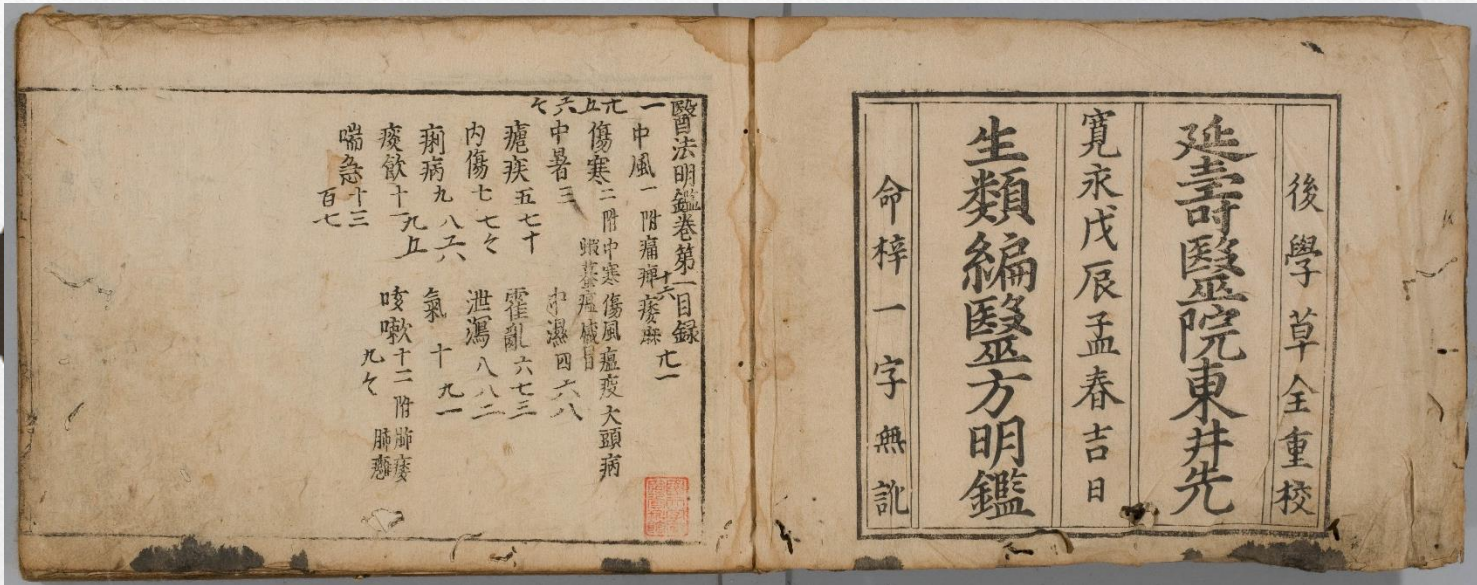 後學草全重校
延壽醫院東井先
寛永戊辰孟春吉日
生類編醫方明鑑
命梓一字無訛
醫法明鑑卷第一目録
中風一附痛痺痿麻
傷寒二附中寒傷風瘟疫大頭病
蝦蟇瘟
中暑三
中濕四六八
瘧疾五七十
霍亂六七三
内傷七七々
泄瀉八八二
痢病九八六
氣十九一
痰飲十一九五
咳嗽十二附肺痿
肺癰
九々
喘急十三
百七